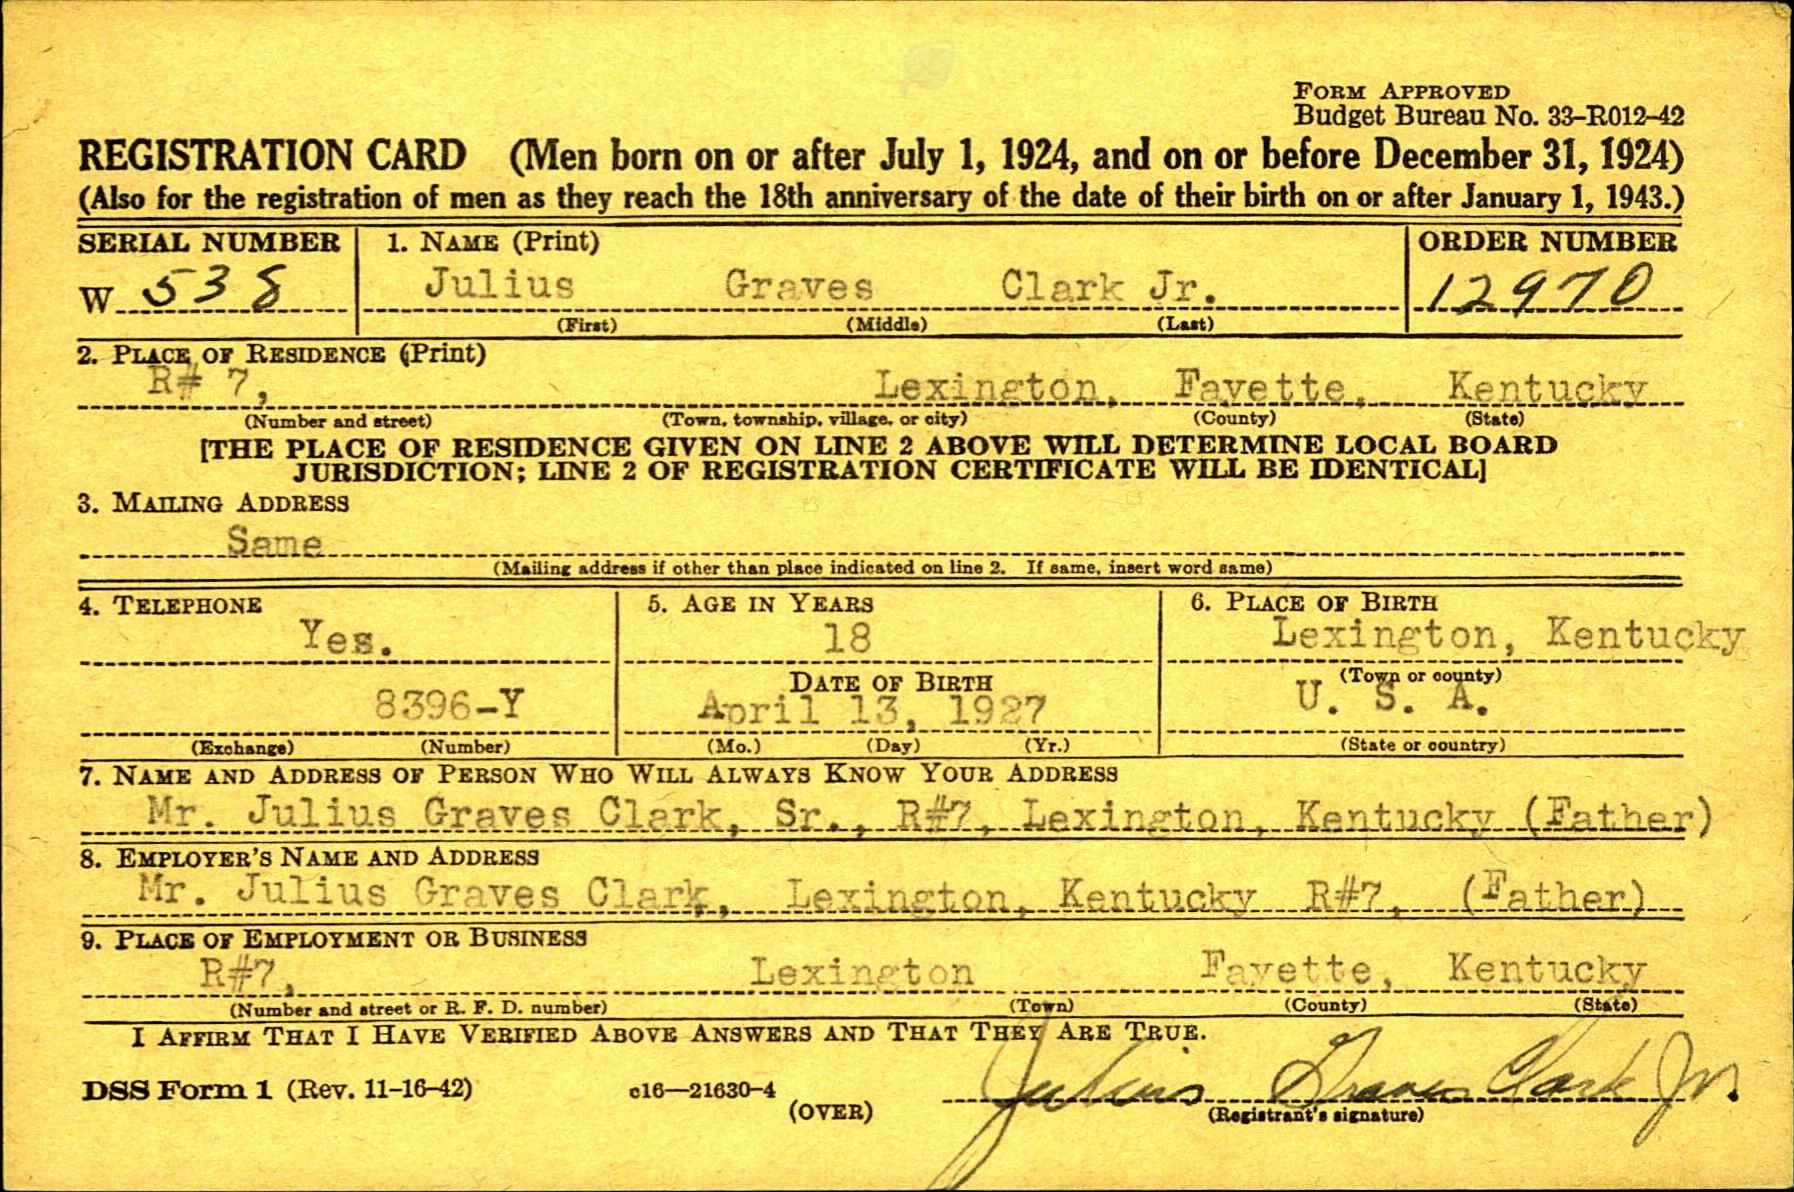 FORM APPROVED
Budget Bureau No. 33-R012-42
REGISTRATION CARD (Men born on or after July 1, 1924, and on or before December 31, 1924)
(Also for the registration of men as they reach the 18th anniversary of the date of their birth on or after January 1, 1943.)
SERIAL NUMBER 1. NAME (Print) ORDER NUMBER
W 538 Julius Graves Clark Jr. 12970
(First) (Middle) (Last)
2. PLACE OF RESIDENCE (Print)
R# 7, Lexington, Fayette, Kentucky
(Number and street) (Town, township, village, or city) (County) (State)
[THE PLACE OF RESIDENCE GIVEN ON LINE 2 ABOVE WILL DETERMINE LOCAL BOARD
JURISDICTION; LINE 2 OF REGISTRATION CERTIFICATE WILL BE IDENTICAL]
3. MAILING ADDRESS
Same
(Mailing address if other than place indicated on line 2. If same, insert word same)
4. TELEPHONE 5. AGE IN YEARS 6. PLACE OF BIRTH
Yes. 18 Lexington, Kentucky
DATE OF BIRTH (Town or county)
8396-Y April 13, 1927 U. S. A.
(Exchange) (Number) (Mo.) (Day) (Yr.) (State or country)
7. NAME AND ADDRESS OF PERSON WHO WILL ALWAYS KNOW YOUR ADDRESS
Mr. Julius Graves Clark, Sr., R#7, Lexington, Kentucky (Father)
8. EMPLOYER'S NAME AND ADDRESS
Mr. Julius Graves Clark, Lexington, Kentucky R#7, (Father)
9. PLACE OF EMPLOYMENT OR BUSINESS
R#7, Lexington Fayette, Kentucky
(Number and street or R. F. D. number) (Town) (County) (State)
I AFFIRM THAT I HAVE VERIFIED ABOVE ANSWERS AND THAT THEY ARE TRUE.
DSS Form 1 (Rev. 11-16-42) c16—21630-4 Julius Graves Clark Jr.
(OVER) (Registrant's signature)